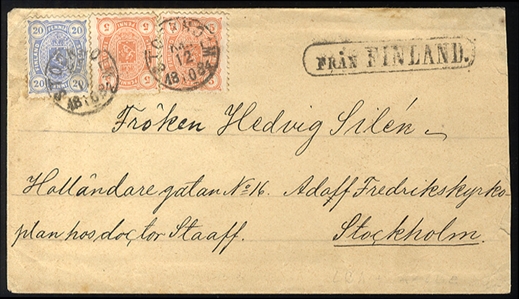 20 20 5 5 5
STOCKHOLM
12
18 10 82
FRÅN FINLAND.
Fröken Hedvig Silén
Holländare gatan No 16. Adolf Fredrikskyrko-
plan hos doctor Staaff.
Stockholm.